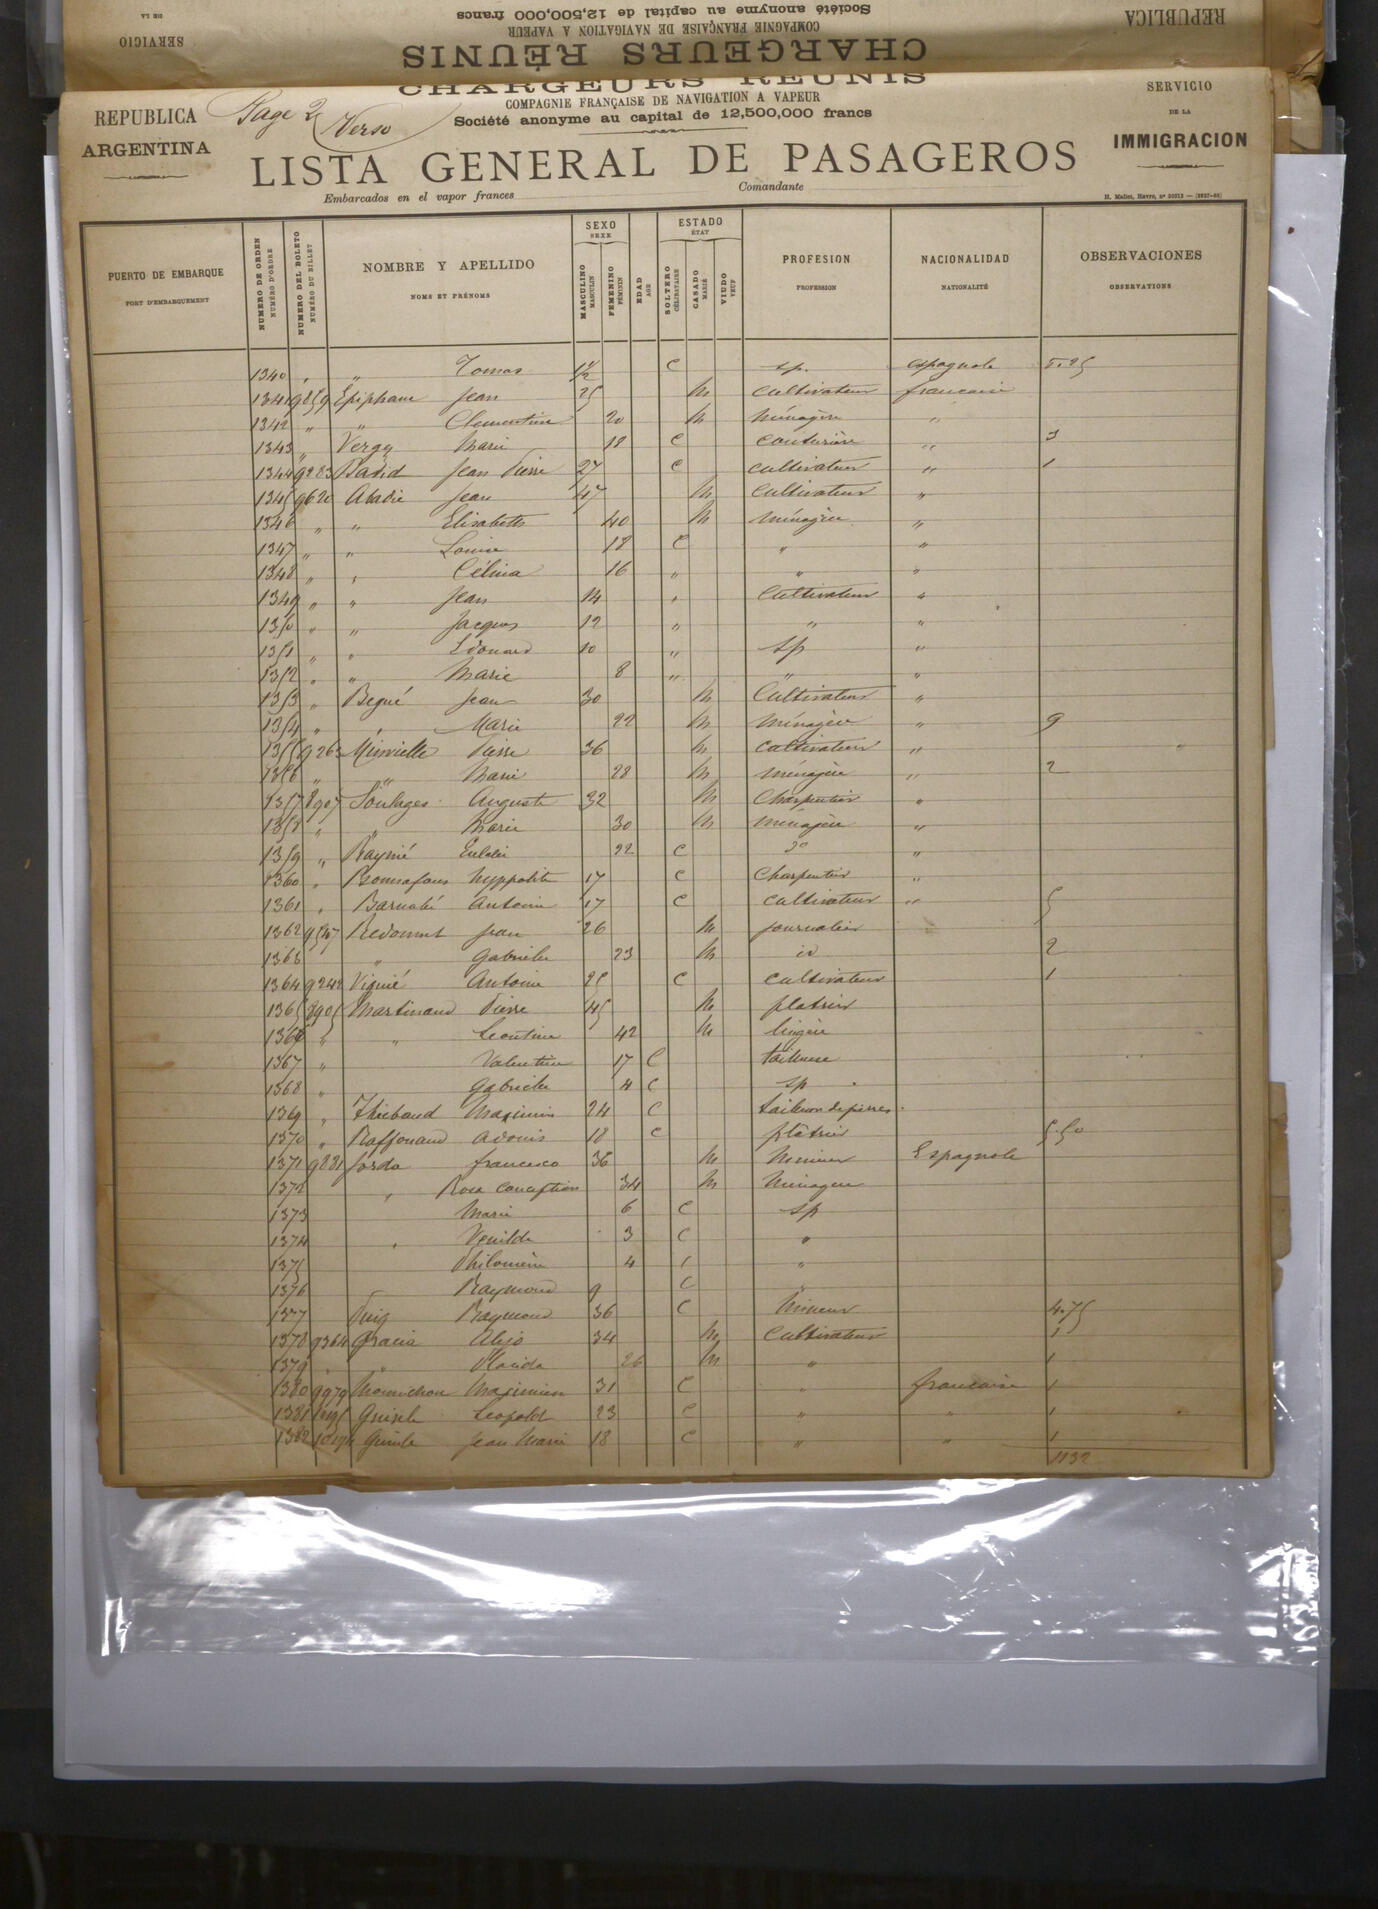 Société anonyme au capital de 12,500,000 francs
COMPAGNIE FRANÇAISE DE NAVIGATION A VAPEUR
CHARGEURS RÉUNIS
REPUBLICA
SERVICIO
DE LA
CHARGEURS RÉUNIS
COMPAGNIE FRANÇAISE DE NAVIGATION A VAPEUR
Société anonyme au capital de 12,500,000 francs
REPUBLICA
ARGENTINA
Page 2 Verso
SERVICIO
DE LA
IMMIGRACION
LISTA GENERAL DE PASAGEROS
Embarcados en el vapor frances
Comandante
H. Mallet, Havre, nº
PUERTO DE EMBARQUE
PORT D'EMBARQUEMENT
NUMERO DE ORDEN
NUMÉRO D'ORDRE
NUMERO DEL BOLETO
NUMÉRO DU BILLET
NOMBRE Y APELLIDO
NOMS ET PRÉNOMS
SEXO
SEXE
MASCULINO
MASCULIN
FEMENINO
FÉMININ
EDAD
AGE
ESTADO
ÉTAT
SOLTERO
CÉLIBATAIRE
CASADO
MARIÉ
VIUDO
VEUF
PROFESION
PROFESSION
NACIONALIDAD
NATIONALITÉ
OBSERVACIONES
OBSERVATIONS
1340 " " Tomas 1½ C sp. espagnole
1341 9859 Epiphane Jean 25 M cultivateur francaise
1342 " " Clementine 20 M ménagère "
1343 " Vergy Marie 18 C couturière " 3
1344 9283 David Jean Pierre 27 C cultivateur " 1
1345 9620 Abadie Jean 47 M cultivateur "
1346 " " Elisabeth 40 M ménagère "
1347 " " Louise 18 C " "
1348 " " Célina 16 " " "
1349 " " Jean 14 " Cultivateur "
1350 " " Jacques 12 " " "
1351 " " Edouard 10 " sp "
1352 " " Marie 8 " " "
1353 " Begué Jean 30 M Cultivateur "
1354 " " Marie 22 M ménagère " 9
1355 9263 Minvielle Pierre 36 M cultivateur "
1356 " " Marie 28 M ménagère " 2
1357 8907 Soulages Auguste 32 M Charpentier "
1358 " " Marie 30 M ménagère "
1359 " Raynié Eulalie 22 C do "
1360 " Bonnafous Hyppolite 17 C Charpentier "
1361 " Barnabé Antoine 17 C cultivateur " 5
1362 9547 Redonnet Jean 26 M journalier
1363 " Gabrielle 23 M id 2
1364 9242 Vignié Antoine 25 C cultivateur 1
1365 8905 Martinaud Pierre 45 M platrier
1366 " " Leontine 42 M lingère
1367 " Valentine 17 C tailleuse
1368 " Gabrielle 4 C sp
1369 " Thiebaud Maximin 24 C tailleur de pierres
1370 " Raffouaud Adonis 18 C plâtrier 5.50
1371 9881 Jorda francesco 36 M Mineur Espagnole
1372 " Rosa Conception 34 M Ménagère
1373 Marie 6 C sp
1374 " 3 C "
1375 Philomène 4 C "
1376 Raymond 9 C "
1377 Puig Raymond 36 C Mineur 4.75
1378 9364 Gracia Alejo 34 M Cultivateur 1
1379 " " Placida 26 M " 1
1380 9979 Maximien 31 C " francaise 1
1381 Leopold 23 C " " 1
1382 Jean Marie 18 C " " 1
1132